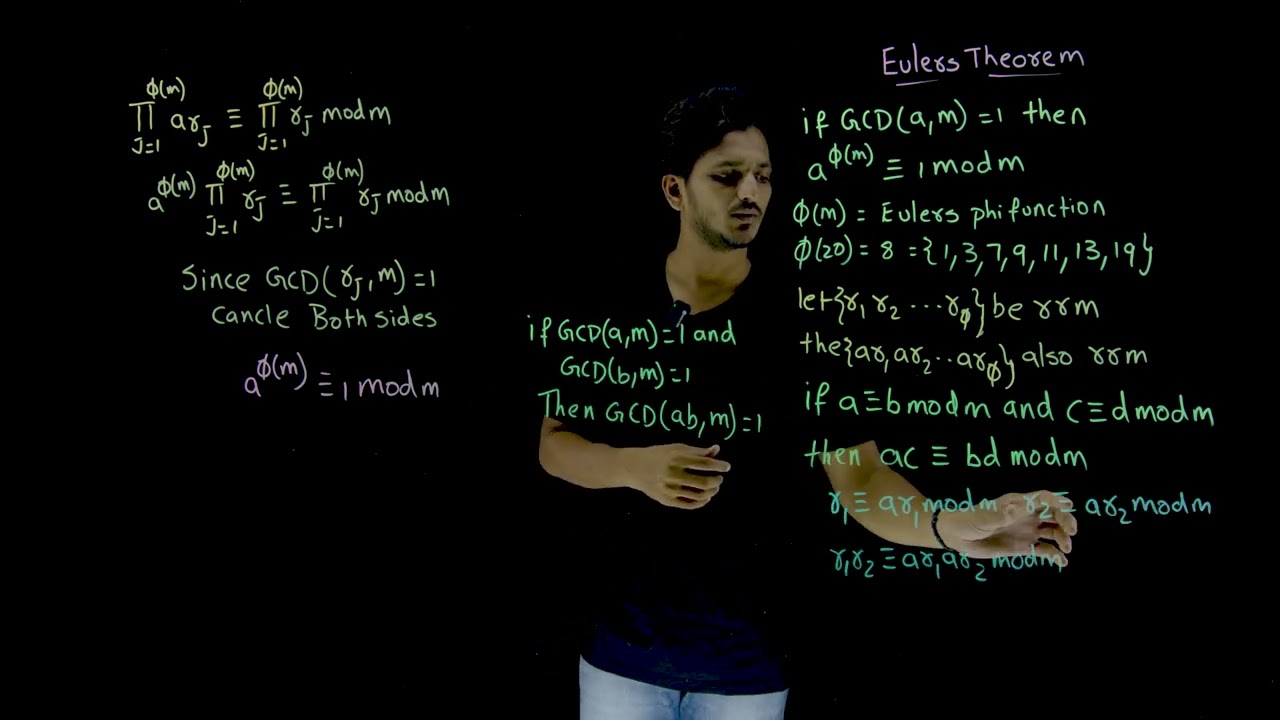 Eulers Theorem
if GCD(a,m) =1 then
a^ϕ(m) ≡ 1 mod m
ϕ(m) = Eulers phi function
ϕ(20) = 8 = {1,3,7,9,11,13,19}
let {r1 r2 ... rϕ} be rrm
the {ar1 ar2 .. arϕ} also rrm
if a≡b mod m and c≡d mod m
then ac ≡ bd mod m
r1 ≡ ar1 mod m r2 ≡ ar2 mod m
r1r2 ≡ ar1ar2 mod m
if GCD(a,m)=1 and
GCD(b,m)=1
Then GCD(ab,m)=1
ϕ(m) ϕ(m)
∏ arJ ≡ ∏ rJ mod m
J=1 J=1
ϕ(m) ϕ(m)
a^ϕ(m) ∏ rJ ≡ ∏ rJ mod m
J=1 J=1
Since GCD(rJ,m)=1
cancle Both sides
a^ϕ(m) ≡ 1 mod m